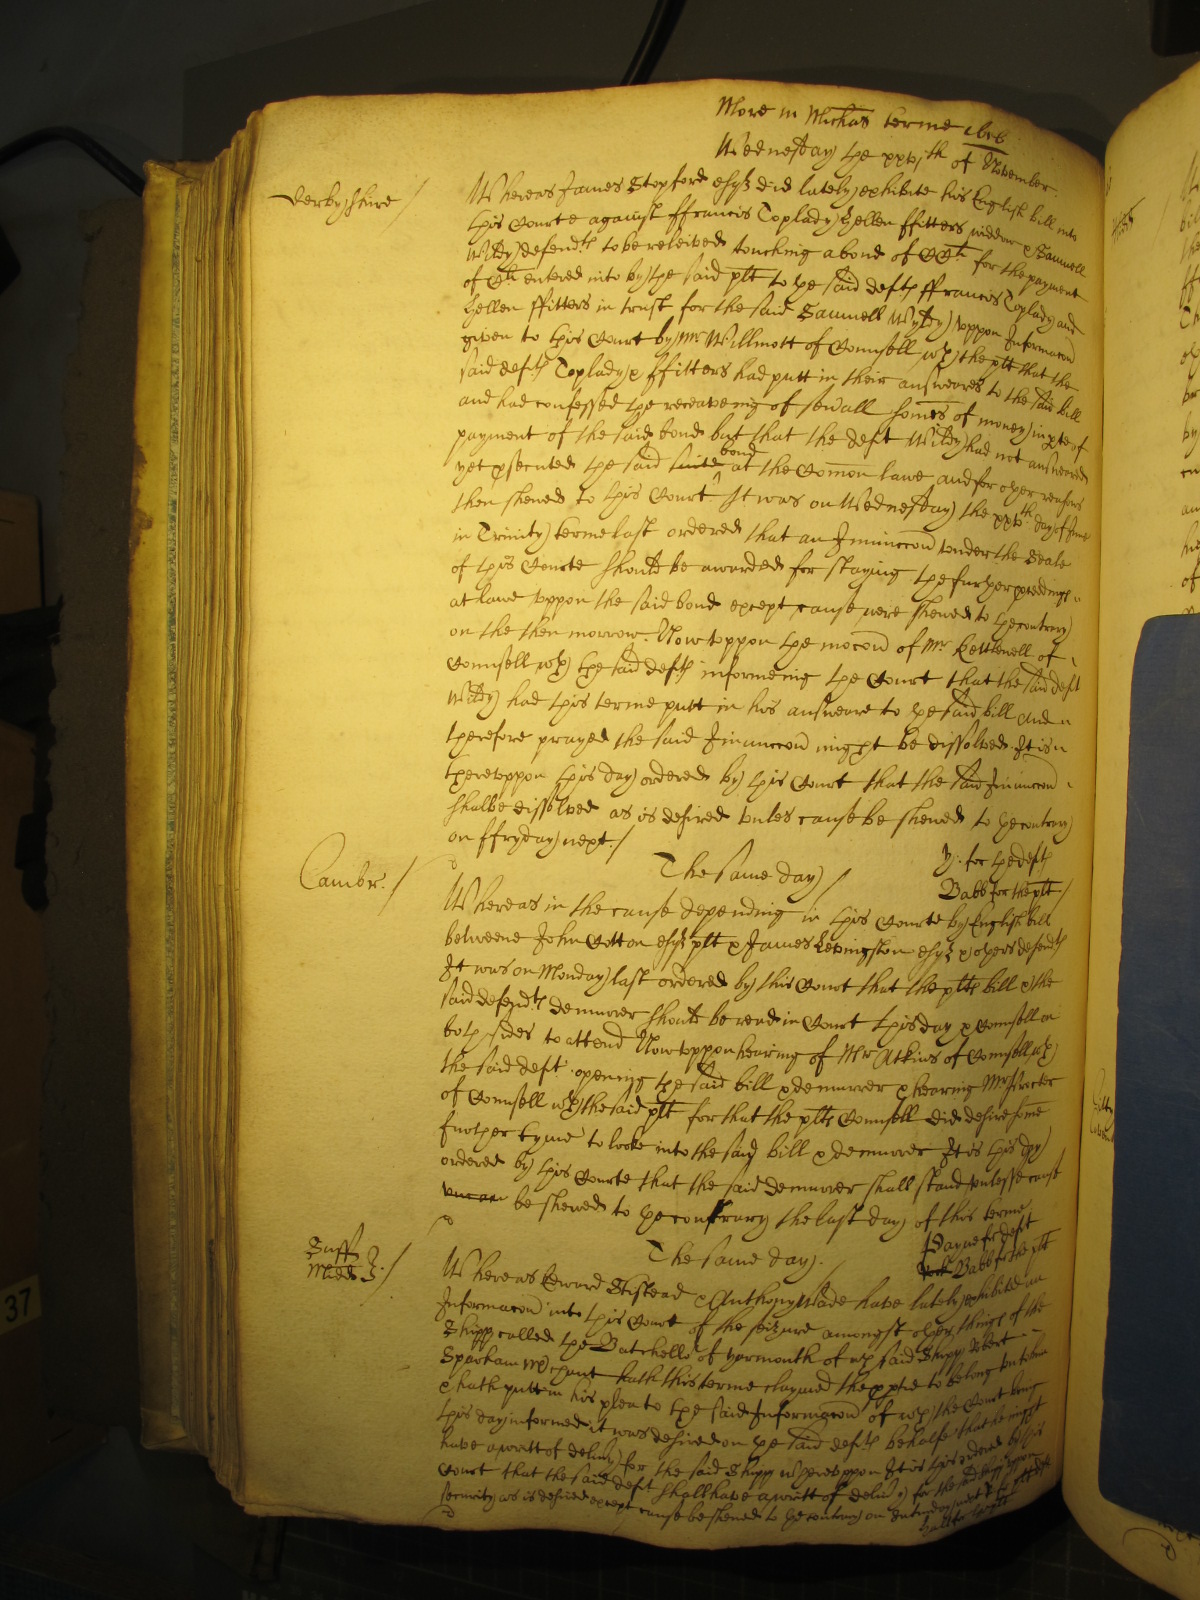 More in Michas terme
Wednesday the xxvjth of November
Derbyshire /
Whereas James Stopford esqr did lately exhibite his English bill into
this Courte against ffrancis Toplady Hellen ffitters widdow & Samuell
Wildy defendts to be releived touching a bond of for the payment
of entered into by the said plt to the said defts ffrancis Toplady and
Hellen ffitters in trust for the said Samuell Wyldy vppon Informacon
given to this Court by Mr Willmott of Counsell wth the plt that the
said defts Toplady & ffitters had putt in their answeares to the said bill
and had confessed the receaveing of seuall somes of money in pte of
payment of the said bond but that the deft Wildy had not answeared
yet psecuted the said suite bond at the Comon lawe and for other reasons
then shewed to this Court It was on Wednesday the xxvth day of June
in Trinity terme last ordered that an Iniunccon vnder the Seale
of this Courte should be awarded for staying the further pceedings
at lawe vppon the said bond except cause were shewed to the contrary
on the then morrow. Now vppon the mocon of Mr Kettlewell of
Counsell wth the said defts informeing the Court that the said deft
Wildy had this terme putt in his answeare to the said bill and
therefore prayed the said Iniunccon might be dissolved. It is
therevppon this day ordered by this Court that the said Iniunccon
shalbe dissolved as is desired vnles cause be shewed to the contrary
on ffryday next. /
for the defts
Babb for the plt /
Cambr. /
The same day /
Whereas in the cause depending in this Courte by English bill
betweene John Cotton esqr plt & James Levingston esqr & others defendts
It was on Monday last ordered by this Court that the plts bill & the
said defendts demurrer should be read in Court this day & Counsell on
both sides to attend Now vppon hearing of Mr Atkins of Counsell wth
the said deft opening the said bill & demurrer & hearing Mr
of Counsell wth the said plt for that the plts Counsell did desire some
further tyme to looke into the said bill & demurrer It is this day
ordered by this Courte that the said demurrer shall stand vnlesse cause
be shewed to the contrary the last day of this terme
Payne for deft
Babb for the plt
Suff
Midds /
The same day.
Whereas Edward Stistead & Anthony Wade have lately exhibited an
Informacon into this Court of the seizure amongst other things of the
Shipp called the Batchellor of Yarmouth of wch said Shipp Robert
Sparham mrchant hath this terme claymed the pptie to belong vnto him
& hath putt in his plea to the said Informacon of wch the Court being
this day informed it was desired on the said defts behalfe that he might
have a writt of delivy for the said Shipp wherevppon It is this ordered by this
Court that the said deft shall have a writt of delivy for the said Shipp vppon
security as is desired except cause be shewed to the contrary on Saterday next